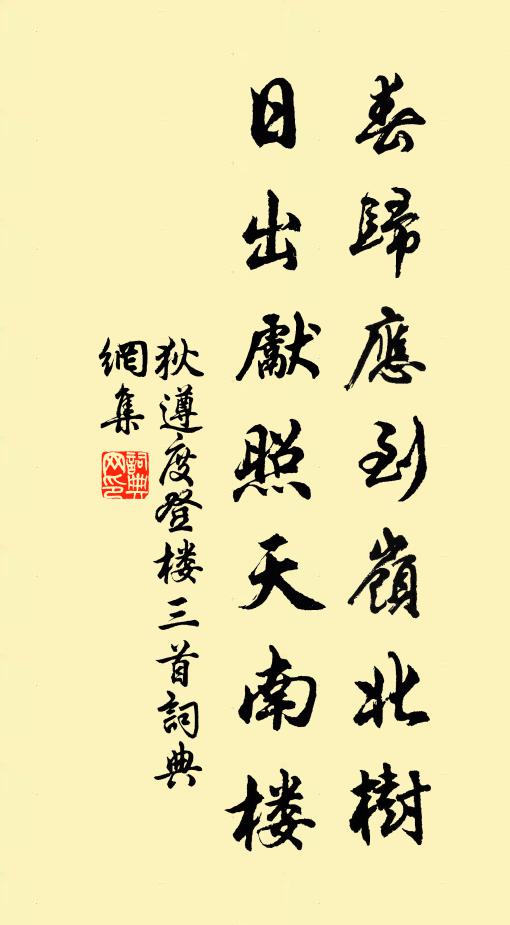 春歸應到嶺北樹
日出獻照天南楼
狄遵度登楼三首詞典
網集
詞典网印